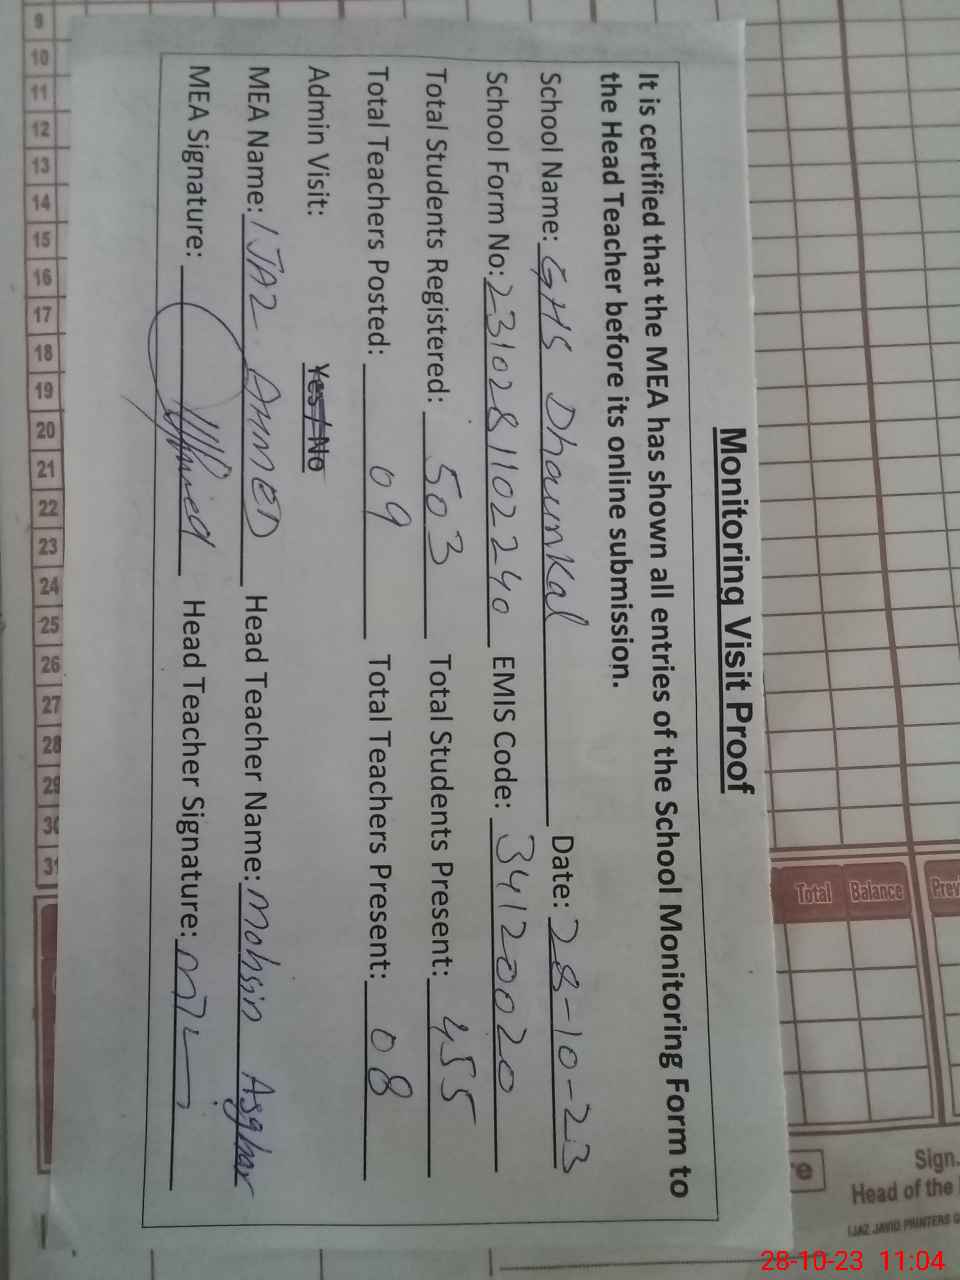 Monitoring Visit Proof
It is certified that the MEA has shown all entries of the School Monitoring Form to
the Head Teacher before its online submission.
School Name: GHS Dhaunkal Date: 28-10-23
School Form No: 2310281102240 EMIS Code: 34120020
Total Students Registered: 503 Total Students Present: 455
Total Teachers Posted: 09 Total Teachers Present: 08
Admin Visit: Yes / No
MEA Name: IJAZ AHMED Head Teacher Name: Mohsin Asghar
MEA Signature: Ahmed Head Teacher Signature:
9
10
11
12
13
14
15
16
17
18
19
20
21
22
23
24
25
26
27
28
29
30
31
Total Balance Prev
Sign.
Head of the
IJAZ JAVID PRINTERS G
28-10-23 11:04